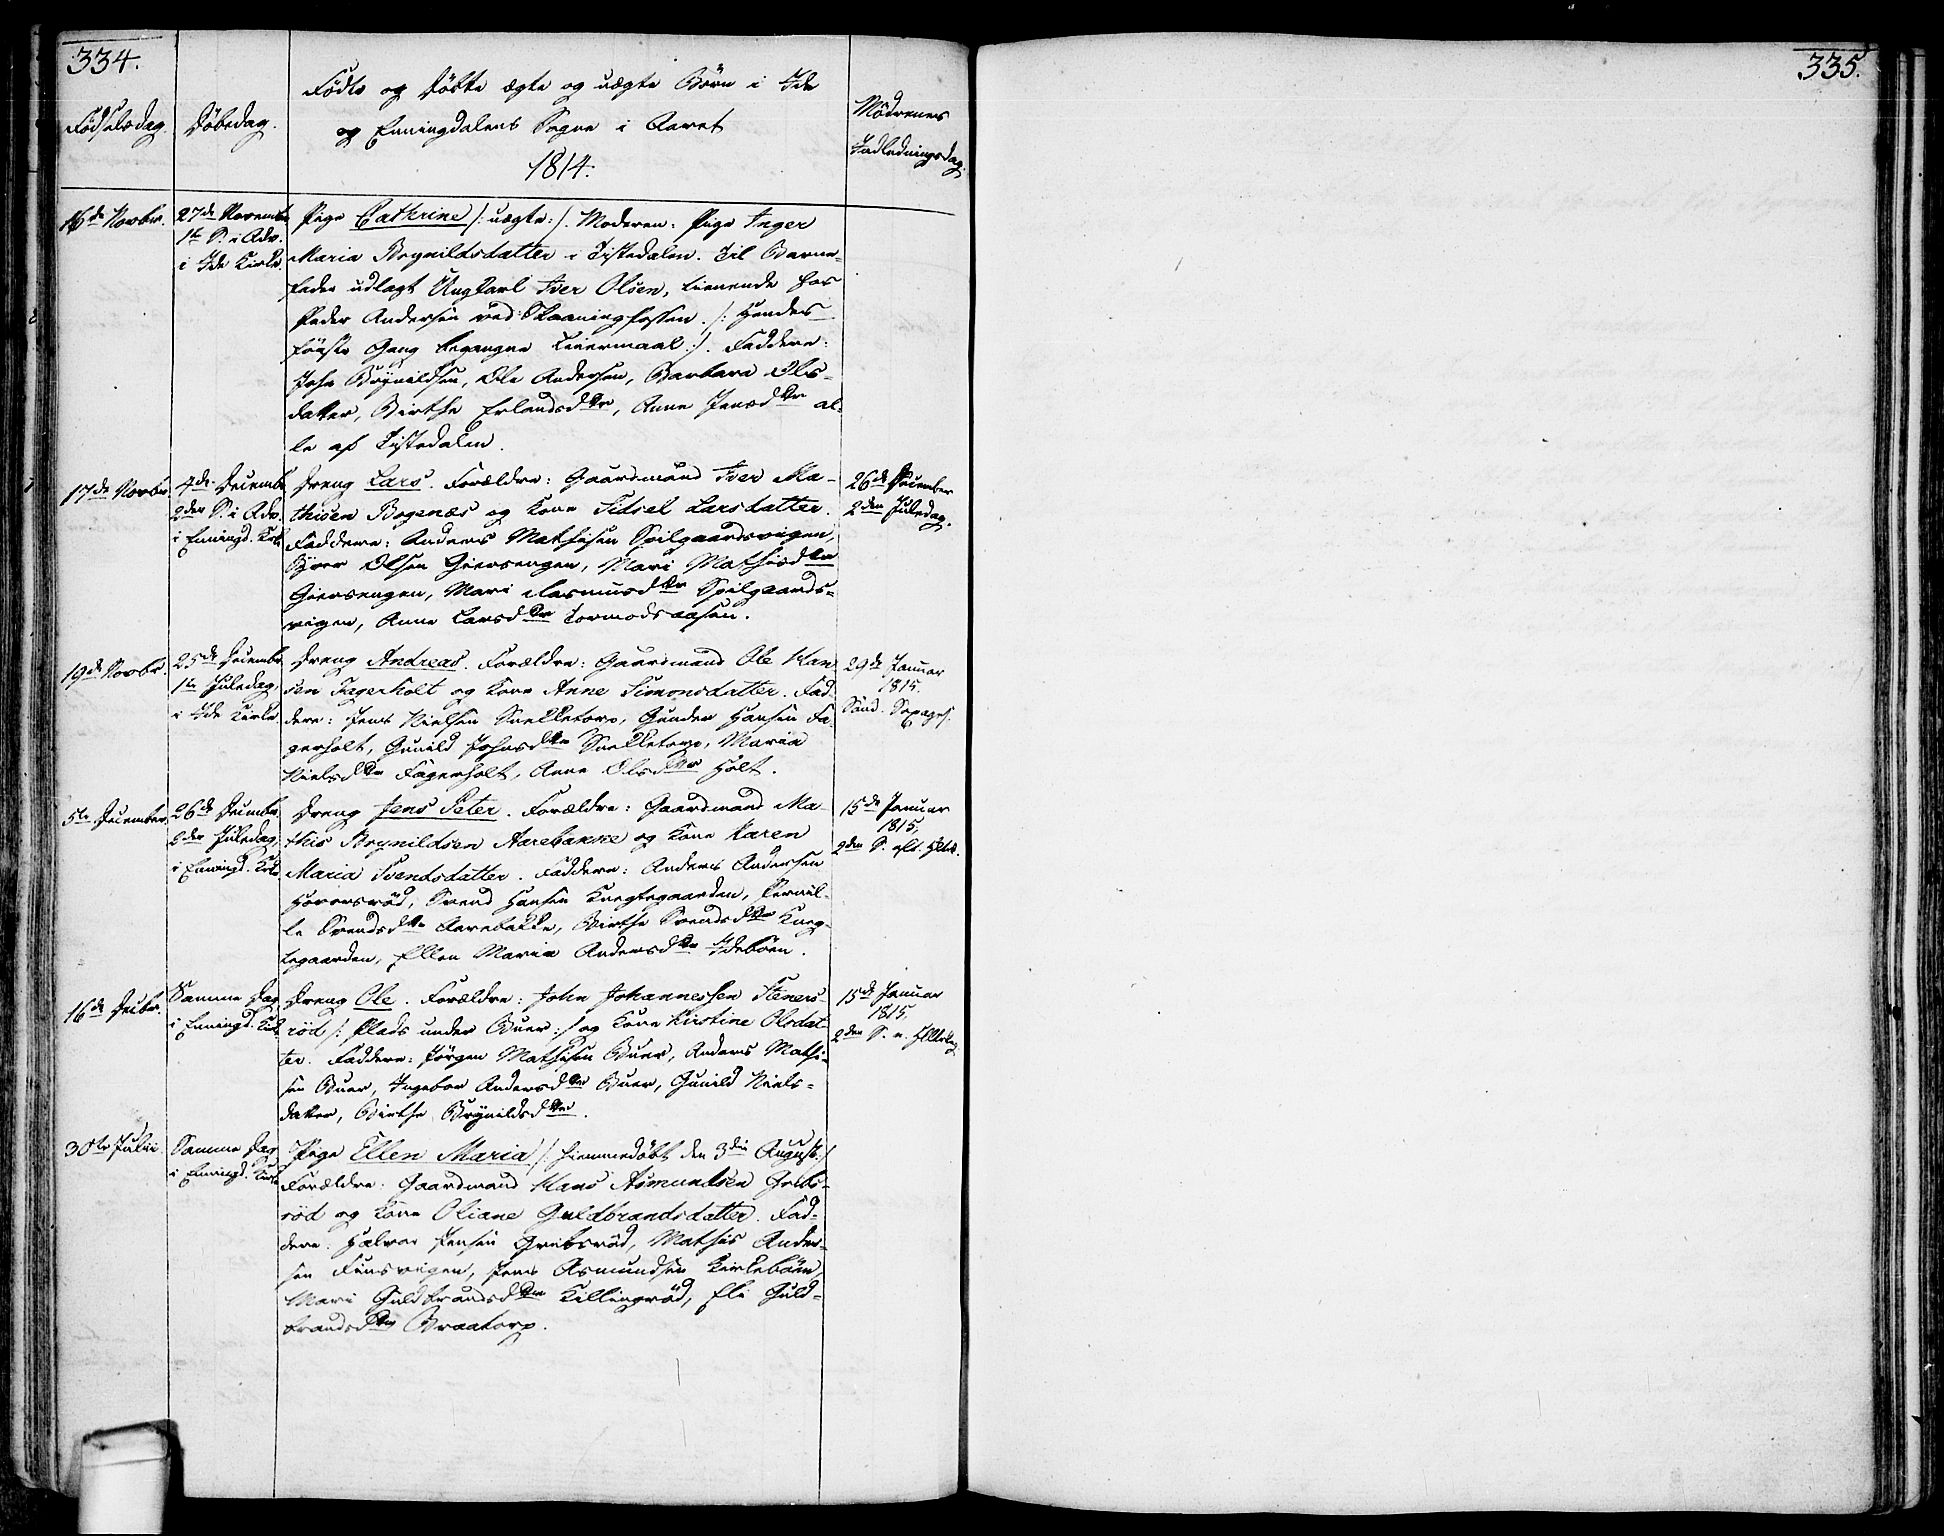 334.
335.
Fødte og Döbte ægte og uægte Börn i Ide
og Enningdalens Sogne i Aaret
1814.
Födselsdag.
Döbedag.
Mödrenes
Indledningsdag.
16de Novbr.
27de Novembr.
1te S. i Adv.
i Ide Kirke.
Pige Cathrine /: uægte :/. Moderen: Pige Inger
Maria Brynildsdatter i Tistedalen. Til Barne-
fader udlagt Ungkarl Iver Olsen, tienende hos
Peder Andersen ved Skaaningfossen. /: Hendes
första Gang begangne Leiermaal :/. Faddere:
John Brÿnildsen, Ole Andersen, Barbara Ols-
datter, Birthe Erlandsdtr, Anne Jensdtr al-
le af Tistedalen.
17de Novbr.
4de Decembr.
2den S. i Adv.
i Enningd. Kirke
Dreng Lars. Forældre: Gaardmand Iver Ma-
thisen Bogenæs og Kone Sidsel Larsdatter.
Faddere: Anders Mathisen Spilgaardsvigen,
Olsen Giersengen, Mari Mathisdtr
Giersengen, Mari Rasmusdtr Spilgaards-
vigen, Anne Larsdtr Tormodsaasen.
26de December
2den Juledag.
19de Novbr.
25de Decembr.
1te Juledag,
i Ide Kirke.
Dreng Andreas. Forældre: Gaardmand Ole Han-
sen Fagerholt og Kone Anne Simonsdatter. Fad-
dere: Jens Nielsen Snelletorp, Gunder Hansen Fa-
gerholt, Gunild Johnsdtr Snelletorp, Maria
Nielsdtr Fagerholt, Anne Olsdtr Holt.
29de Januar
1815.
Sönd. Sexages.
5te December.
26de Decembr.
2den Juledag,
i Enningd. Kirke
Dreng Jens Peter. Forældre: Gaardmand Ma-
this Brynildsen Aarebakke og Kone Karen
Maria Svendsdatter. Faddere: Anders Andersen
Hoversröd, Svend Hansen Knegtegaarden, Pernil-
le Svendsdtr Aarebakke, Birthe Svendsdtr Kneg-
tegaarden, Ellen Maria Andersdtr Ideböen.
15de Januar
1815,
2den S. eft.
16de Decbr.
Samme Dag
i Enningd. Kirke
Dreng Ole. Forældre: John Johannessen Steners-
röd /: Plads under Buer :/ og Kone Kirstine Olsdat-
ter. Faddere: Jörgen Mathisen Buer, Anders Mathi-
sen Buer, Ingebor Andersdtr Buer, Gunild Niels-
datter, Birthe Brÿnildsdtr.
15de Januar
1815.
2den S. e.
30te Julii.
Samme Dag
i Enningd. Kirke
Pige Ellen Maria /: hiemmedöbt den 3die August :/
Forældre: Gaardmand Hans Asmundsen Grebs-
röd og Kone Oliane Guldbrandsdatter. Fad-
dere. Halvor Jensen Grebsröd, Mathis Ander-
sen Finsvigen, Jens Asmundsen Kirkeböen,
Mari Guldbrandsdtr Killingröd, Eli Guld-
brandsdtr Braatorp.